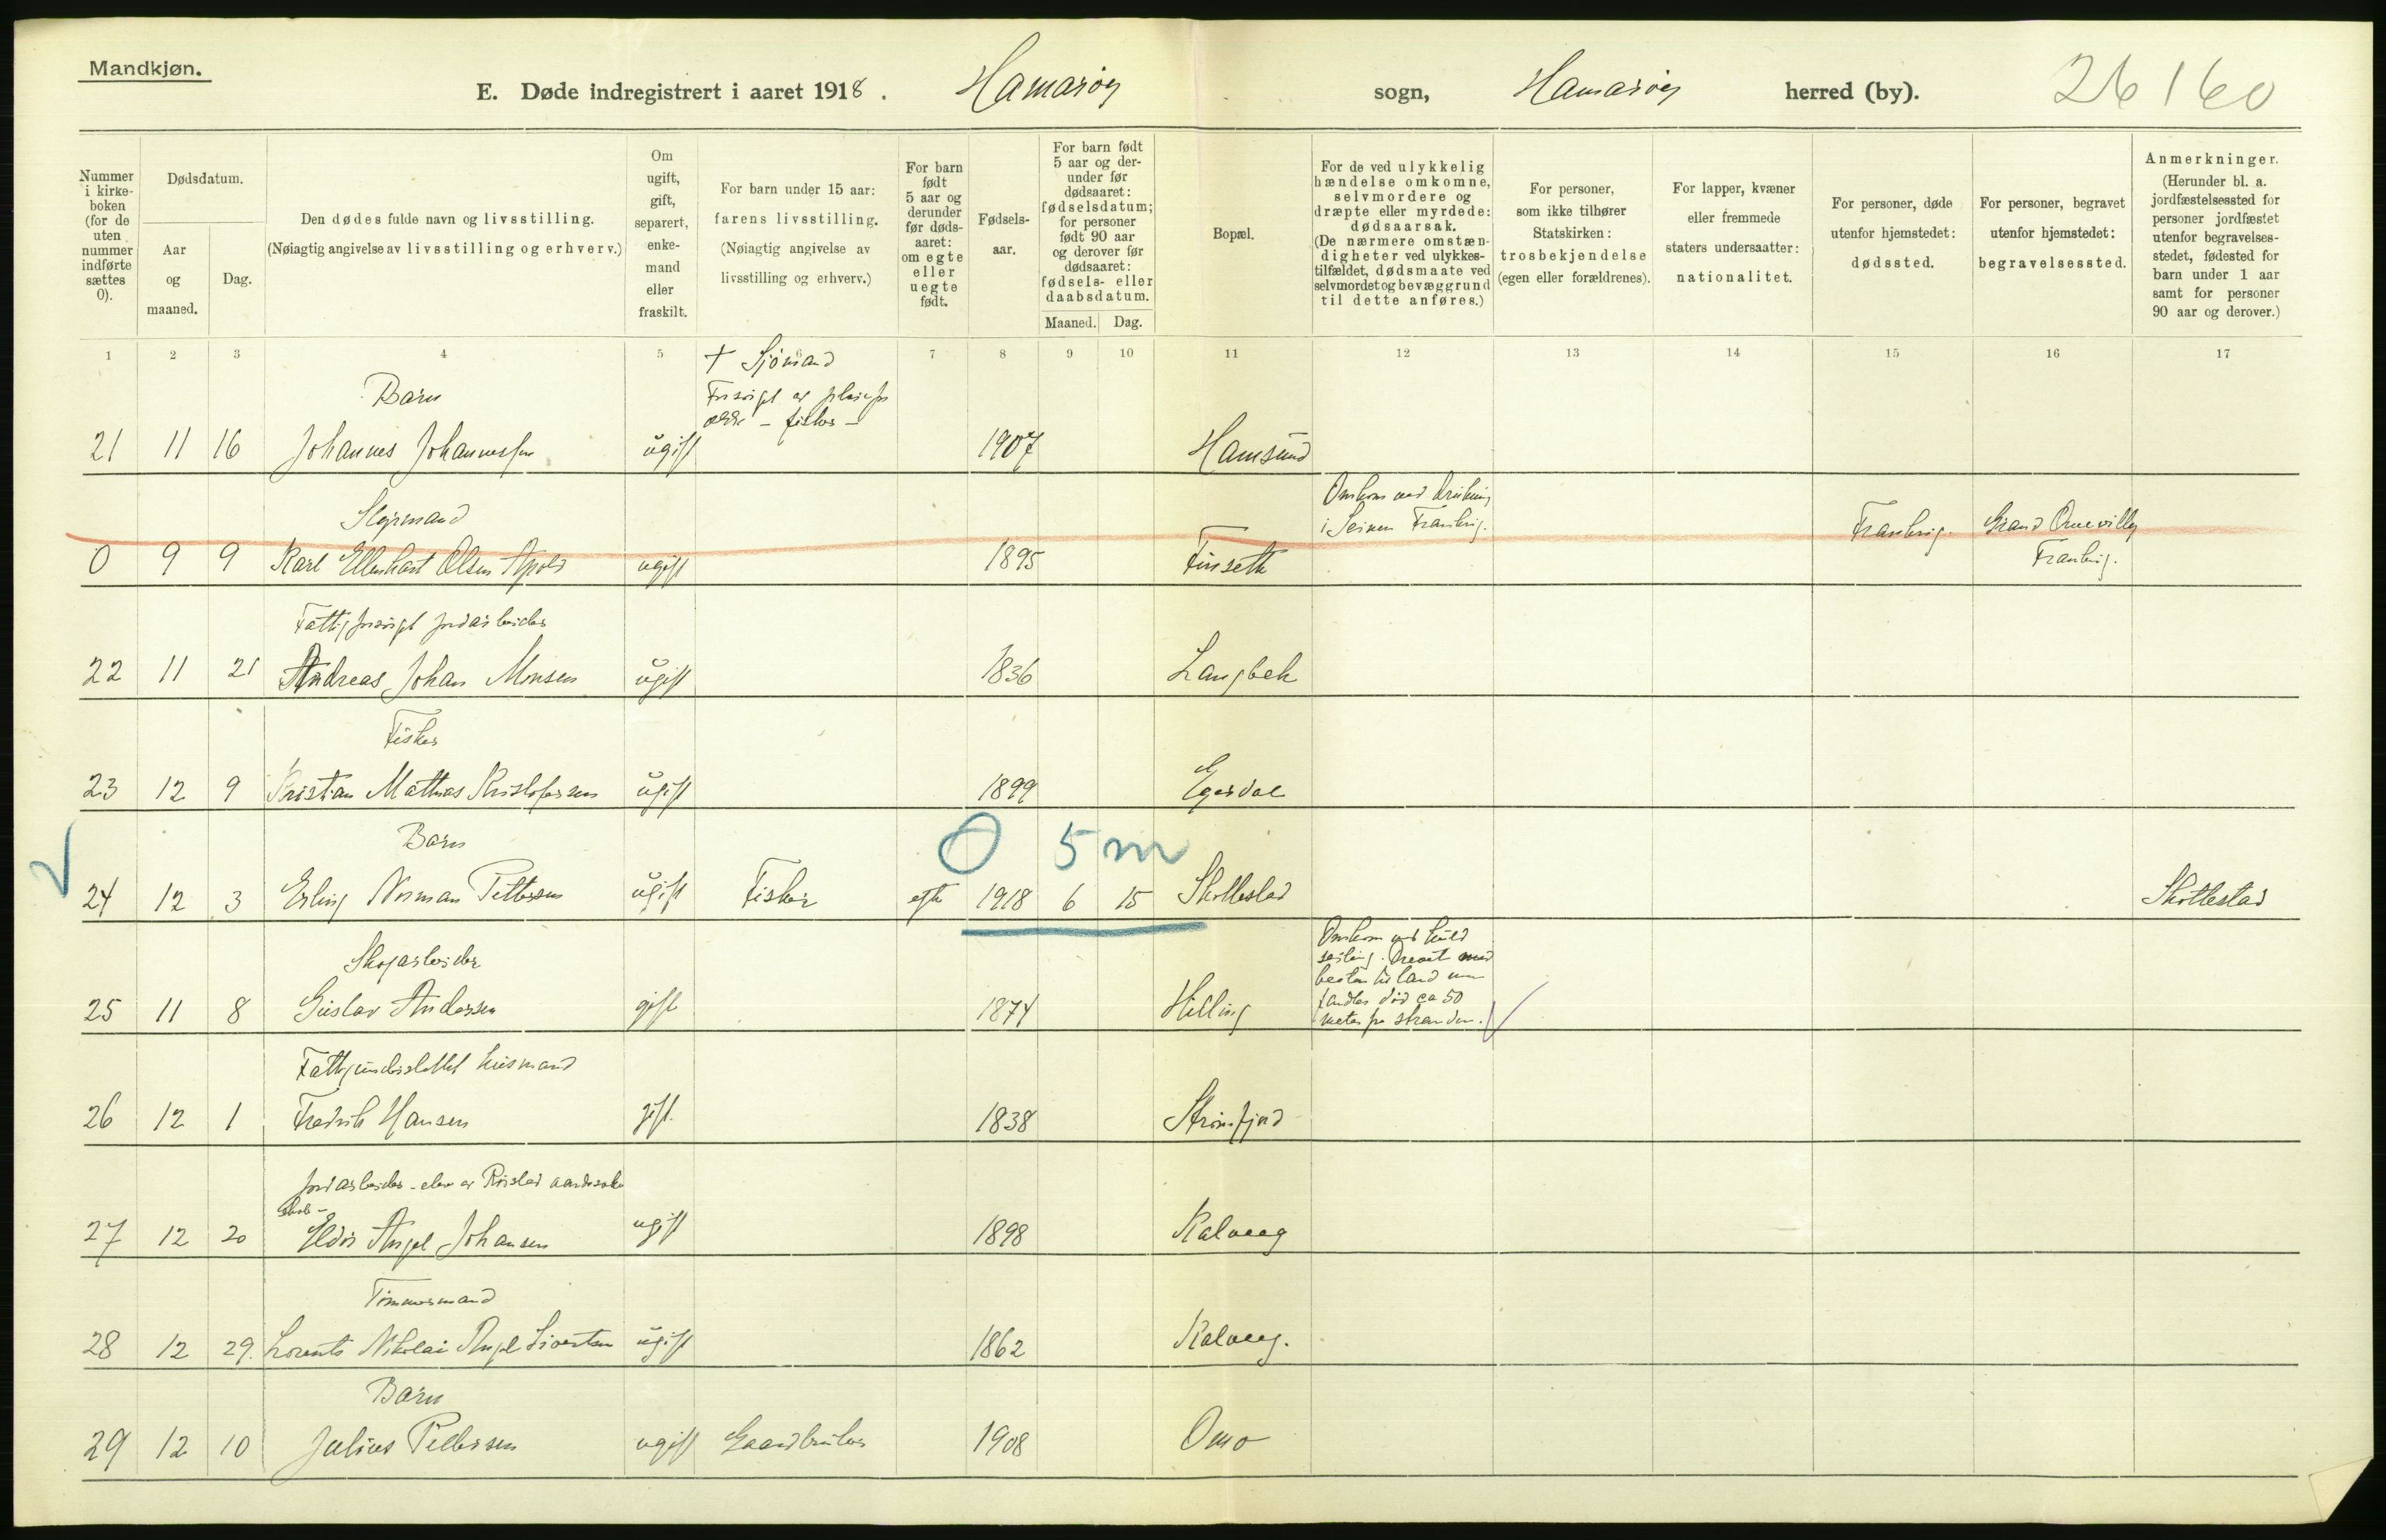 Mandkjøn.
E. Døde indregistrert i aaret 1918. Hamarøy sogn, Hamarøy herred (by). 26 160
Nummer i kirkeboken (for de uten nummer indførte sættes 0).
Dødsdatum.
Aar og maaned.
Dag.
Den dødes fulde navn og livsstilling.
(Nøiagtig angivelse av livsstilling og erhverv.)
Om ugift, gift, separert, enkemand eller fraskilt.
For barn under 15 aar: farens livsstilling.
(Nøiagtig angivelse av livsstilling og erhverv.)
For barn født 5 aar og derunder før dødsaaret: om egte eller uegte født.
Fødselsaar.
For barn født 5 aar og derunder før dødsaaret: fødselsdatum; for personer født 90 aar og derover før dødsaaret: fødsels- eller daabsdatum.
Maaned.
Dag.
Bopæl.
For de ved ulykkelig hændelse omkomne, selvmordere og dræpte eller myrdede: dødsaarsak.
(De nærmere omstændigheter ved ulykkestilfældet, dødsmaate ved selvmordet og bevæggrund til dette anføres.)
For personer, som ikke tilhører Statskirken: trosbekjendelse (egen eller forældrenes).
For lapper, kvæner eller fremmede staters undersaatter: nationalitet.
For personer, døde utenfor hjemstedet: dødssted.
For personer, begravet utenfor hjemstedet: begravelsessted.
Anmerkninger.
(Herunder bl. a. jordfæstelsessted for personer jordfæstet utenfor begravelsesstedet, fødested for barn under 1 aar samt for personer 90 aar og derover.)
1 2 3 4 5 6 7 8 9 10 11 12 13 14 15 16 17
† Sjömand
Forsörget av pleiefor
ældre - fisker -
Barn
21 11 16 Johannes Johannessen ugift 1907 Hamsund
Styrmand
Omkom ved drukning
i Seinen Frankrig.
0 9 9 Karl Ellenhart Olsen ugift 1895 Finseth Frankrig. Grand Frankrig.
Fattigforsörget jordarbeider
22 11 21 Andreas Johan Monsen ugift 1836 Langbek
Fisker
23 12 9 Kristian Mathias Kristofersen ugift 1899 Egerdal
Barn
0 5 m
24 12 3 Erling Norman Pettersen ugift Fisker egte 1918 6 15 Skottestad Skottestad
Skogarbeider
Omkom ved
seiling. Drevet med
baaten til land men
fandtes död ca 50
meter fra stranden.
25 11 8 Gustav Andersen gift 1874 Hilling
Fattigunderstöttet husmand
26 12 1 Fredrik Hansen gift 1838 Strömfjord
Jordarbeider - elev av Röslad
skole -
27 12 20 Eldor Angel Johansen ugift 1898 Kalveg
Tömmermand
28 12 29. Lorents Nikolai Angel Sivertsen ugift 1862 Kalveg.
Barn
29 12 10 Julius Pettersen ugift Gaardbruker 1908 Omo